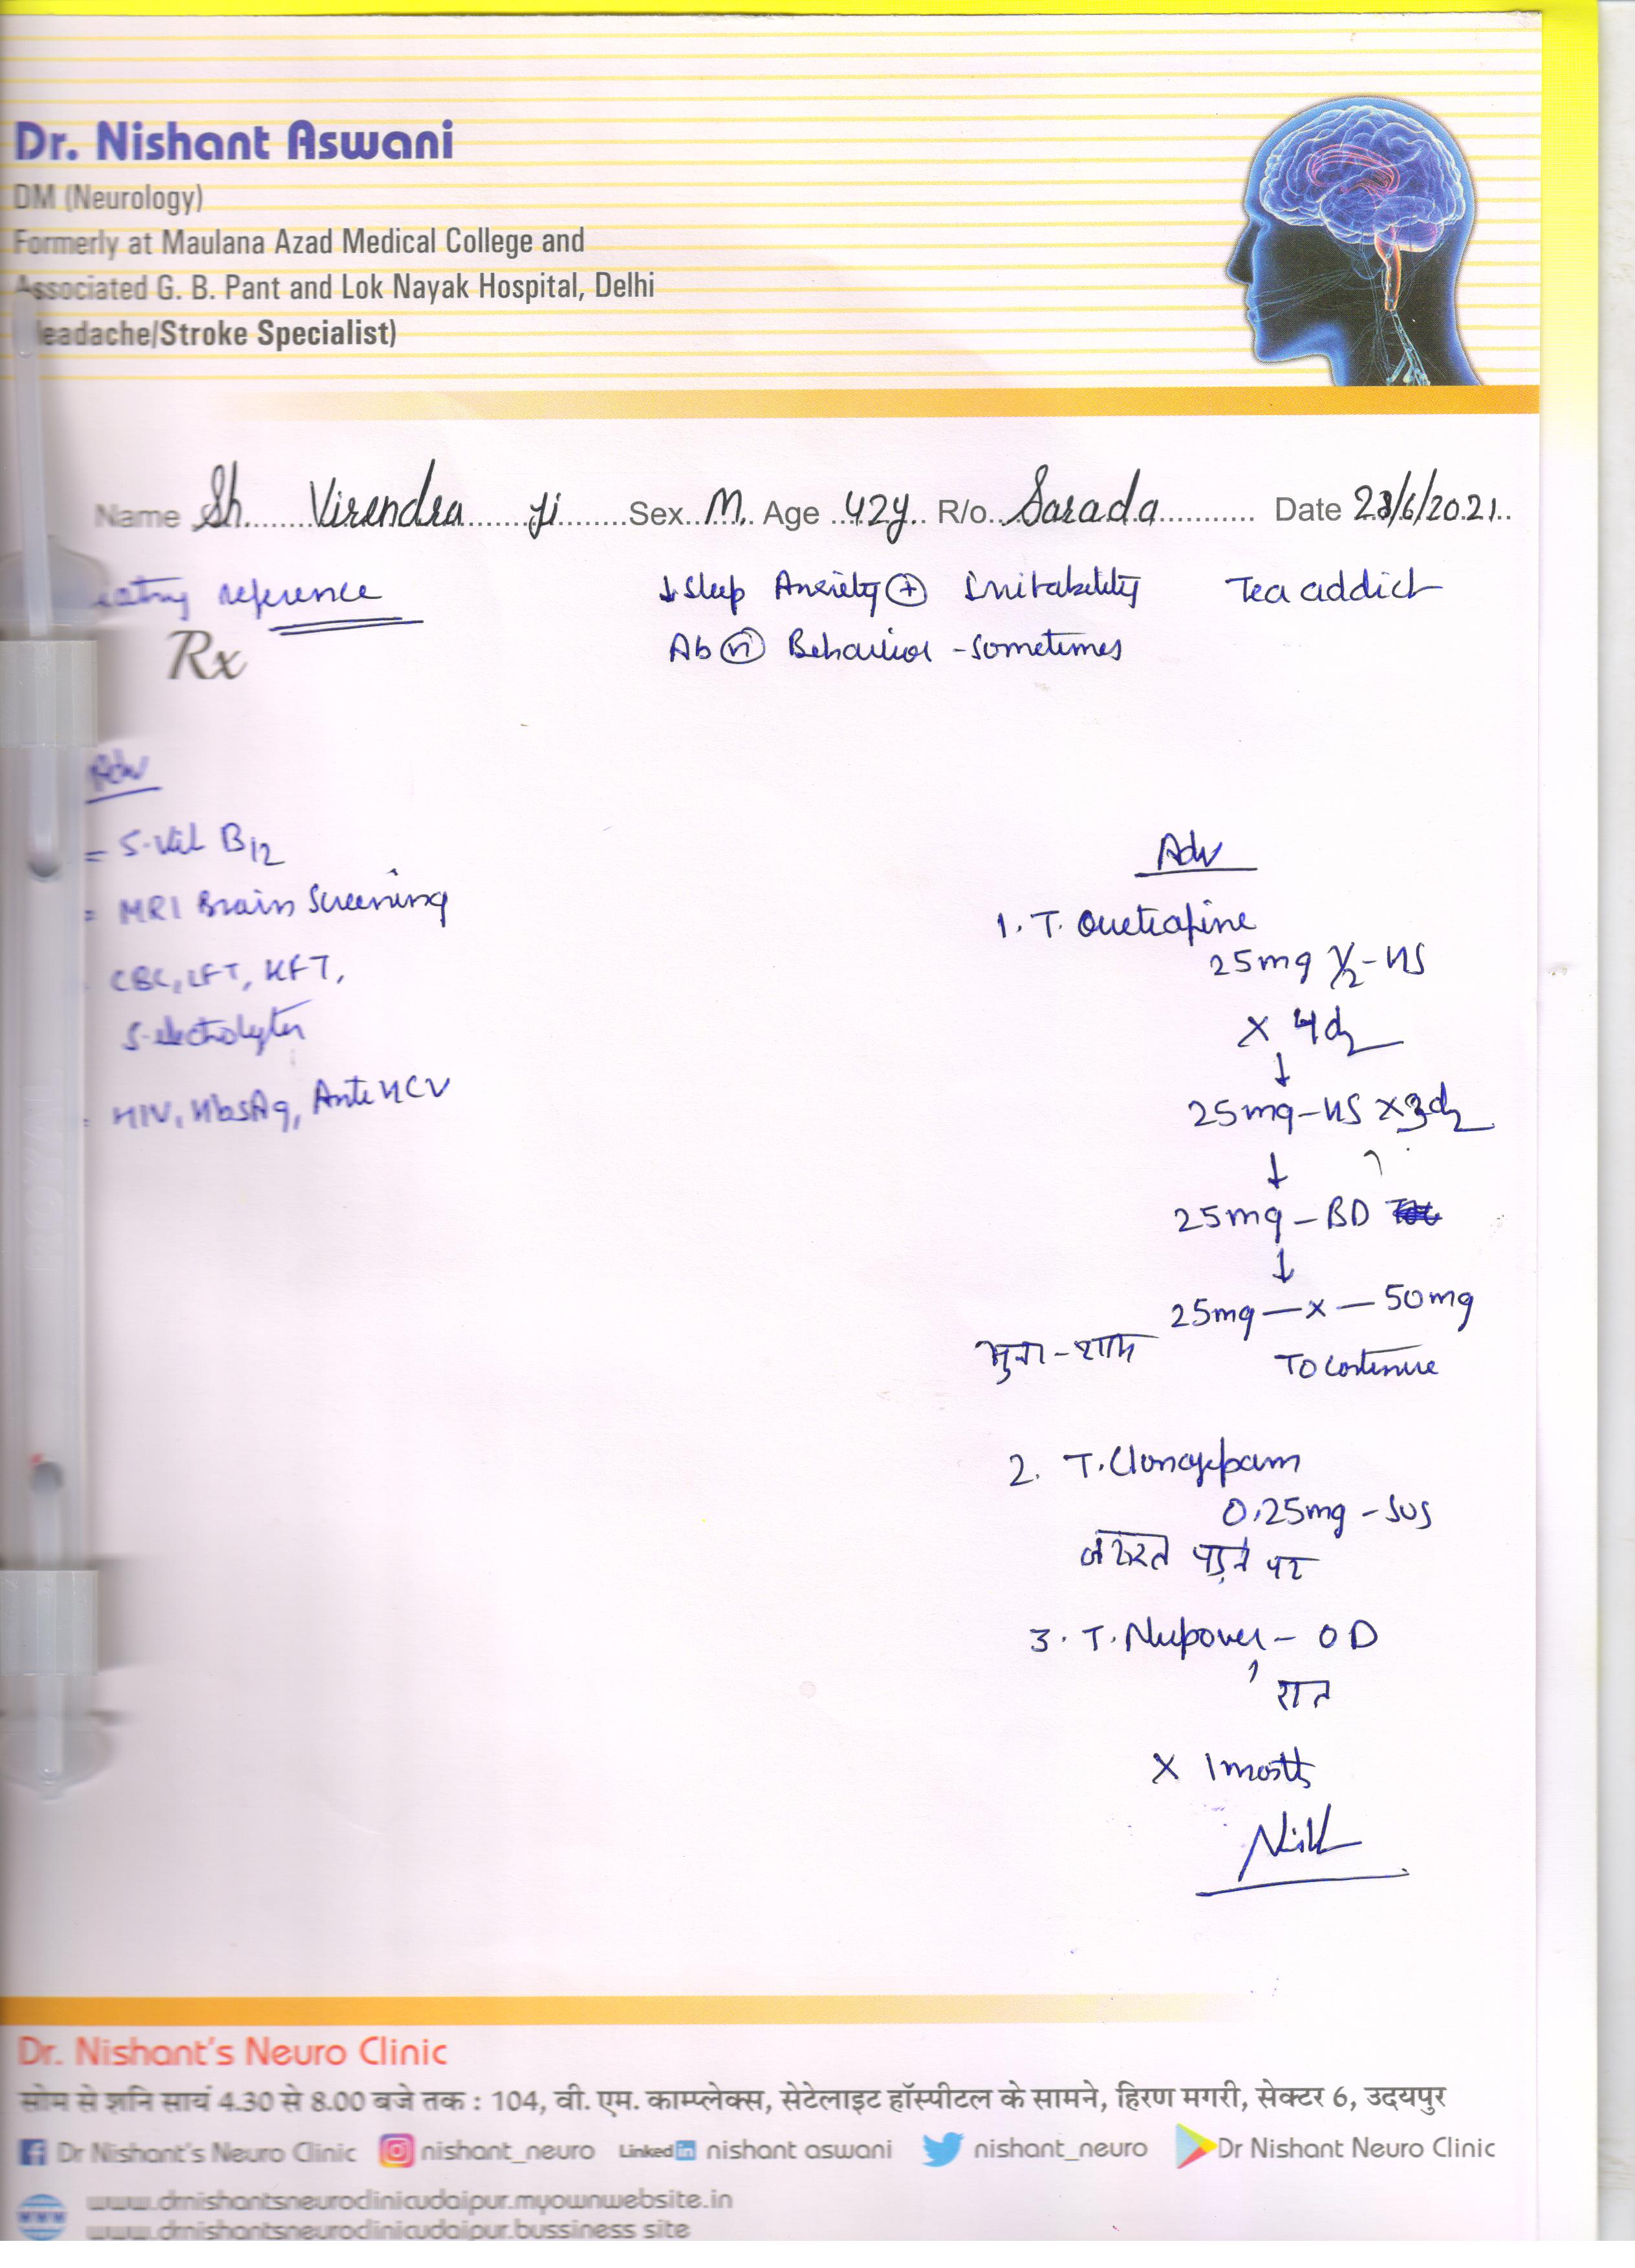 Dr. Nishant Aswani
DM (Neurology)
Formerly at Maulana Azad Medical College and
Associated G. B. Pant and Lok Nayak Hospital, Delhi
eadache/Stroke Specialist)
Name Sh Virendra ji Sex M. Age 42y. R/o. Sarada Date 23/6/2021
reference
↓ sleep Anxiety ⊕ irritability Tea addict
Ab ⓝ Behaviour - sometimes
Rx
Adv
= S. Vit B12
= MRI Brain Screening
- CBC, LFT, KFT,
S. electrolytes
- HIV, HbsAg, Anti HCV
Adv
1. T. Quetiapine
25mg ½ - HS
x 4d
↓
25mg - HS x 3d
↓
25mg - BD
↓
25mg — x — 50mg
सुबह - शाम
To continue
2. T. Clonazepam
0.25mg - SOS
जरूरत पड़ने पर
3. T. Nupower - OD
रात
x 1 month
Dr. Nishant's Neuro Clinic
सोम से शनि सायं 4.30 से 8.00 बजे तक : 104, वी. एम. काम्प्लेक्स, सेटेलाइट हॉस्पीटल के सामने, हिरण मगरी, सेक्टर 6, उदयपुर
Dr Nishant's Neuro Clinic nishant_neuro Linked in nishant aswani nishant_neuro Dr Nishant Neuro Clinic
www.drnishantsneuroclinicudaipur.myownwebsite.in
www.drnishantsneuroclinicudaipur.bussiness site